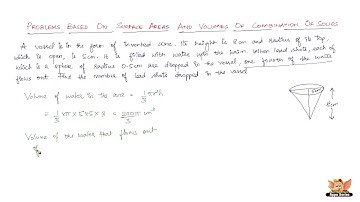 PROBLEMS BASED ON SURFACE AREAS AND VOLUMES OF COMBINATION OF SOLIDS
A vessel is in the form of inverted cone. Its height is 8cm and radius of its top,
which is open, is 5cm. It is filled with water upto the brim. When lead shots, each of
which is a sphere of radius 0.5cm are dropped in the vessel, one fourth of the water
flows out. Find the number of lead shots dropped in the vessel
Volume of water in the cone = 1/3 πr²h
= 1/3 × π × 5×5 × 8 = 200π/3 cm³
Volume of the water that flows out
of
5cm
8cm